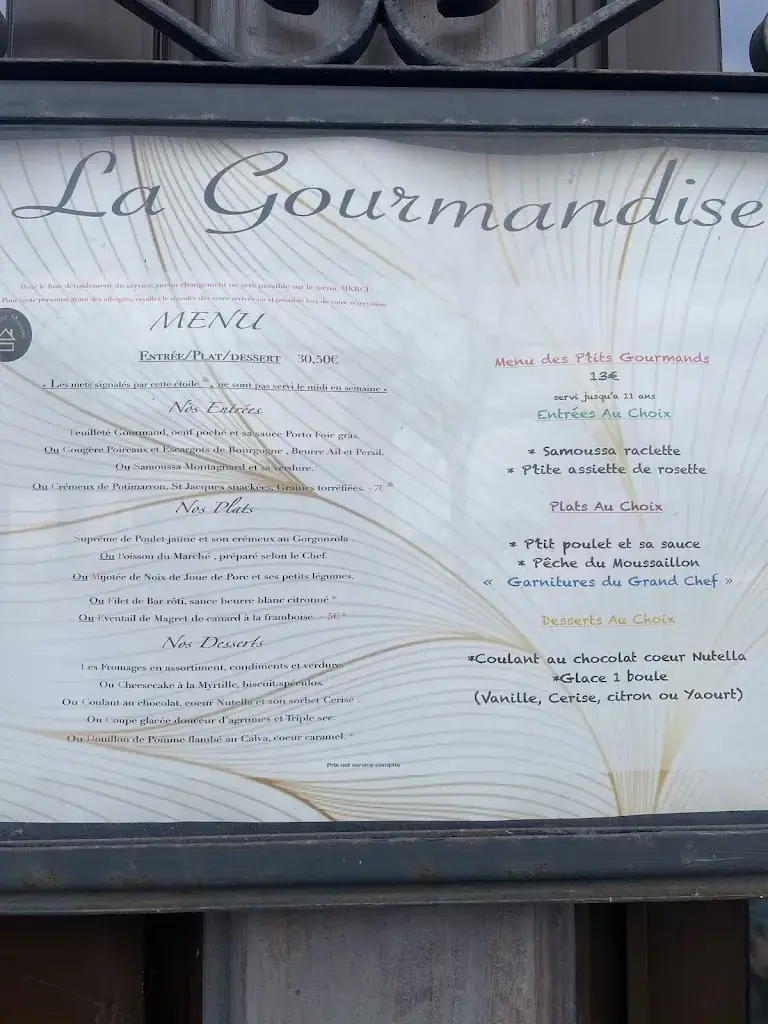 La Gourmandise
Pour le bon déroulement du service, aucun changement ne sera possible sur le menu. MERCI
Pour toute personne ayant des allergies, veuillez le signaler dès votre arrivée ou si possible lors de votre réservation
MENU
ENTRÉE/PLAT/DESSERT 30,50€
« Les mets signalés par cette étoile *, ne sont pas servi le midi en semaine »
Nos Entrées
Feuilleté Gourmand, oeuf poché et sa sauce Porto Foie gras.
Ou Gougère Poireaux et Escargots de Bourgogne , Beurre Ail et Persil.
Ou Samoussa Montagnard et sa verdure.
Ou Crémeux de Potimarron, St Jacques snackées, Graines torréfiées. +7€ *
Nos Plats
Suprême de Poulet jaune et son crémeux au Gorgonzola .
Ou Poisson du Marché , préparé selon le Chef.
Ou Mijotée de Noix de Joue de Porc et ses petits légumes.
Ou Filet de Bar rôti, sauce beurre blanc citronné *
Ou Eventail de Magret de canard à la framboise. + 5€ *
Nos Desserts
Les Fromages en assortiment, condiments et verdure.
Ou Cheesecake à la Myrtille, biscuit spéculos.
Ou Coulant au chocolat, coeur Nutella et son sorbet Cerise .
Ou Coupe glacée douceur d'agrumes et Triple sec.
Ou Douillon de Pomme flambé au Calva, coeur caramel. *
Prix net service compris
Menu des P'tits Gourmands
13€
servi jusqu'a 11 ans
Entrées Au Choix
* Samoussa raclette
* P'tite assiette de rosette
Plats Au Choix
* P'tit poulet et sa sauce
* Pêche du Moussaillon
« Garnitures du Grand Chef »
Desserts Au Choix
*Coulant au chocolat coeur Nutella
*Glace 1 boule
(Vanille, Cerise, citron ou Yaourt)